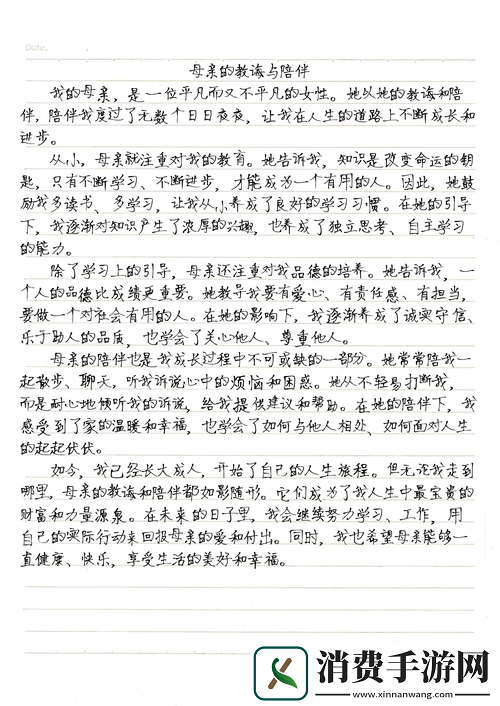 Date.
母亲的教诲与陪伴
我的母亲，是一位平凡而又不平凡的女性。她以她的教诲和陪
伴，陪伴我度过了无数个日日夜夜，让我在人生的道路上不断成长和
进步。
从小，母亲就注重对我的教育。她告诉我，知识是改变命运的钥
匙，只有不断学习、不断进步，才能成为一个有用的人。因此，她鼓
励我多读书、多学习，让我从小养成了良好的学习习惯。在她的引导
下，我逐渐对知识产生了浓厚的兴趣，也养成了独立思考、自主学习
的能力。
除了学习上的引导，母亲还注重对我品德的培养。她告诉我，一
个人的品德比成绩更重要。她教导我要有爱心、有责任感、有担当，
要做一个对社会有用的人。在她的影响下，我逐渐养成了诚实守信、
乐于助人的品质，也学会了关心他人、尊重他人。
母亲的陪伴也是我成长过程中不可或缺的一部分。她常常陪我一
起散步、聊天，听我诉说心中的烦恼和困惑。她从不轻易打断我，
而是耐心地倾听我的诉说，给我提供建议和帮助。在她的陪伴下，我
感受到了家的温暖和幸福，也学会了如何与他人相处、如何面对人生
的起起伏伏。
如今，我已经长大成人，开始了自己的人生旅程。但无论我走到
哪里，母亲的教诲和陪伴都如影随形。它们成为了我人生中最宝贵的
财富和力量源泉。在未来的日子里，我会继续努力学习、工作，用
自己的实际行动来回报母亲的爱和付出。同时，我也希望母亲能够一
直健康、快乐，享受生活的美好和幸福。
消费手游网
www.xinnanwang.com